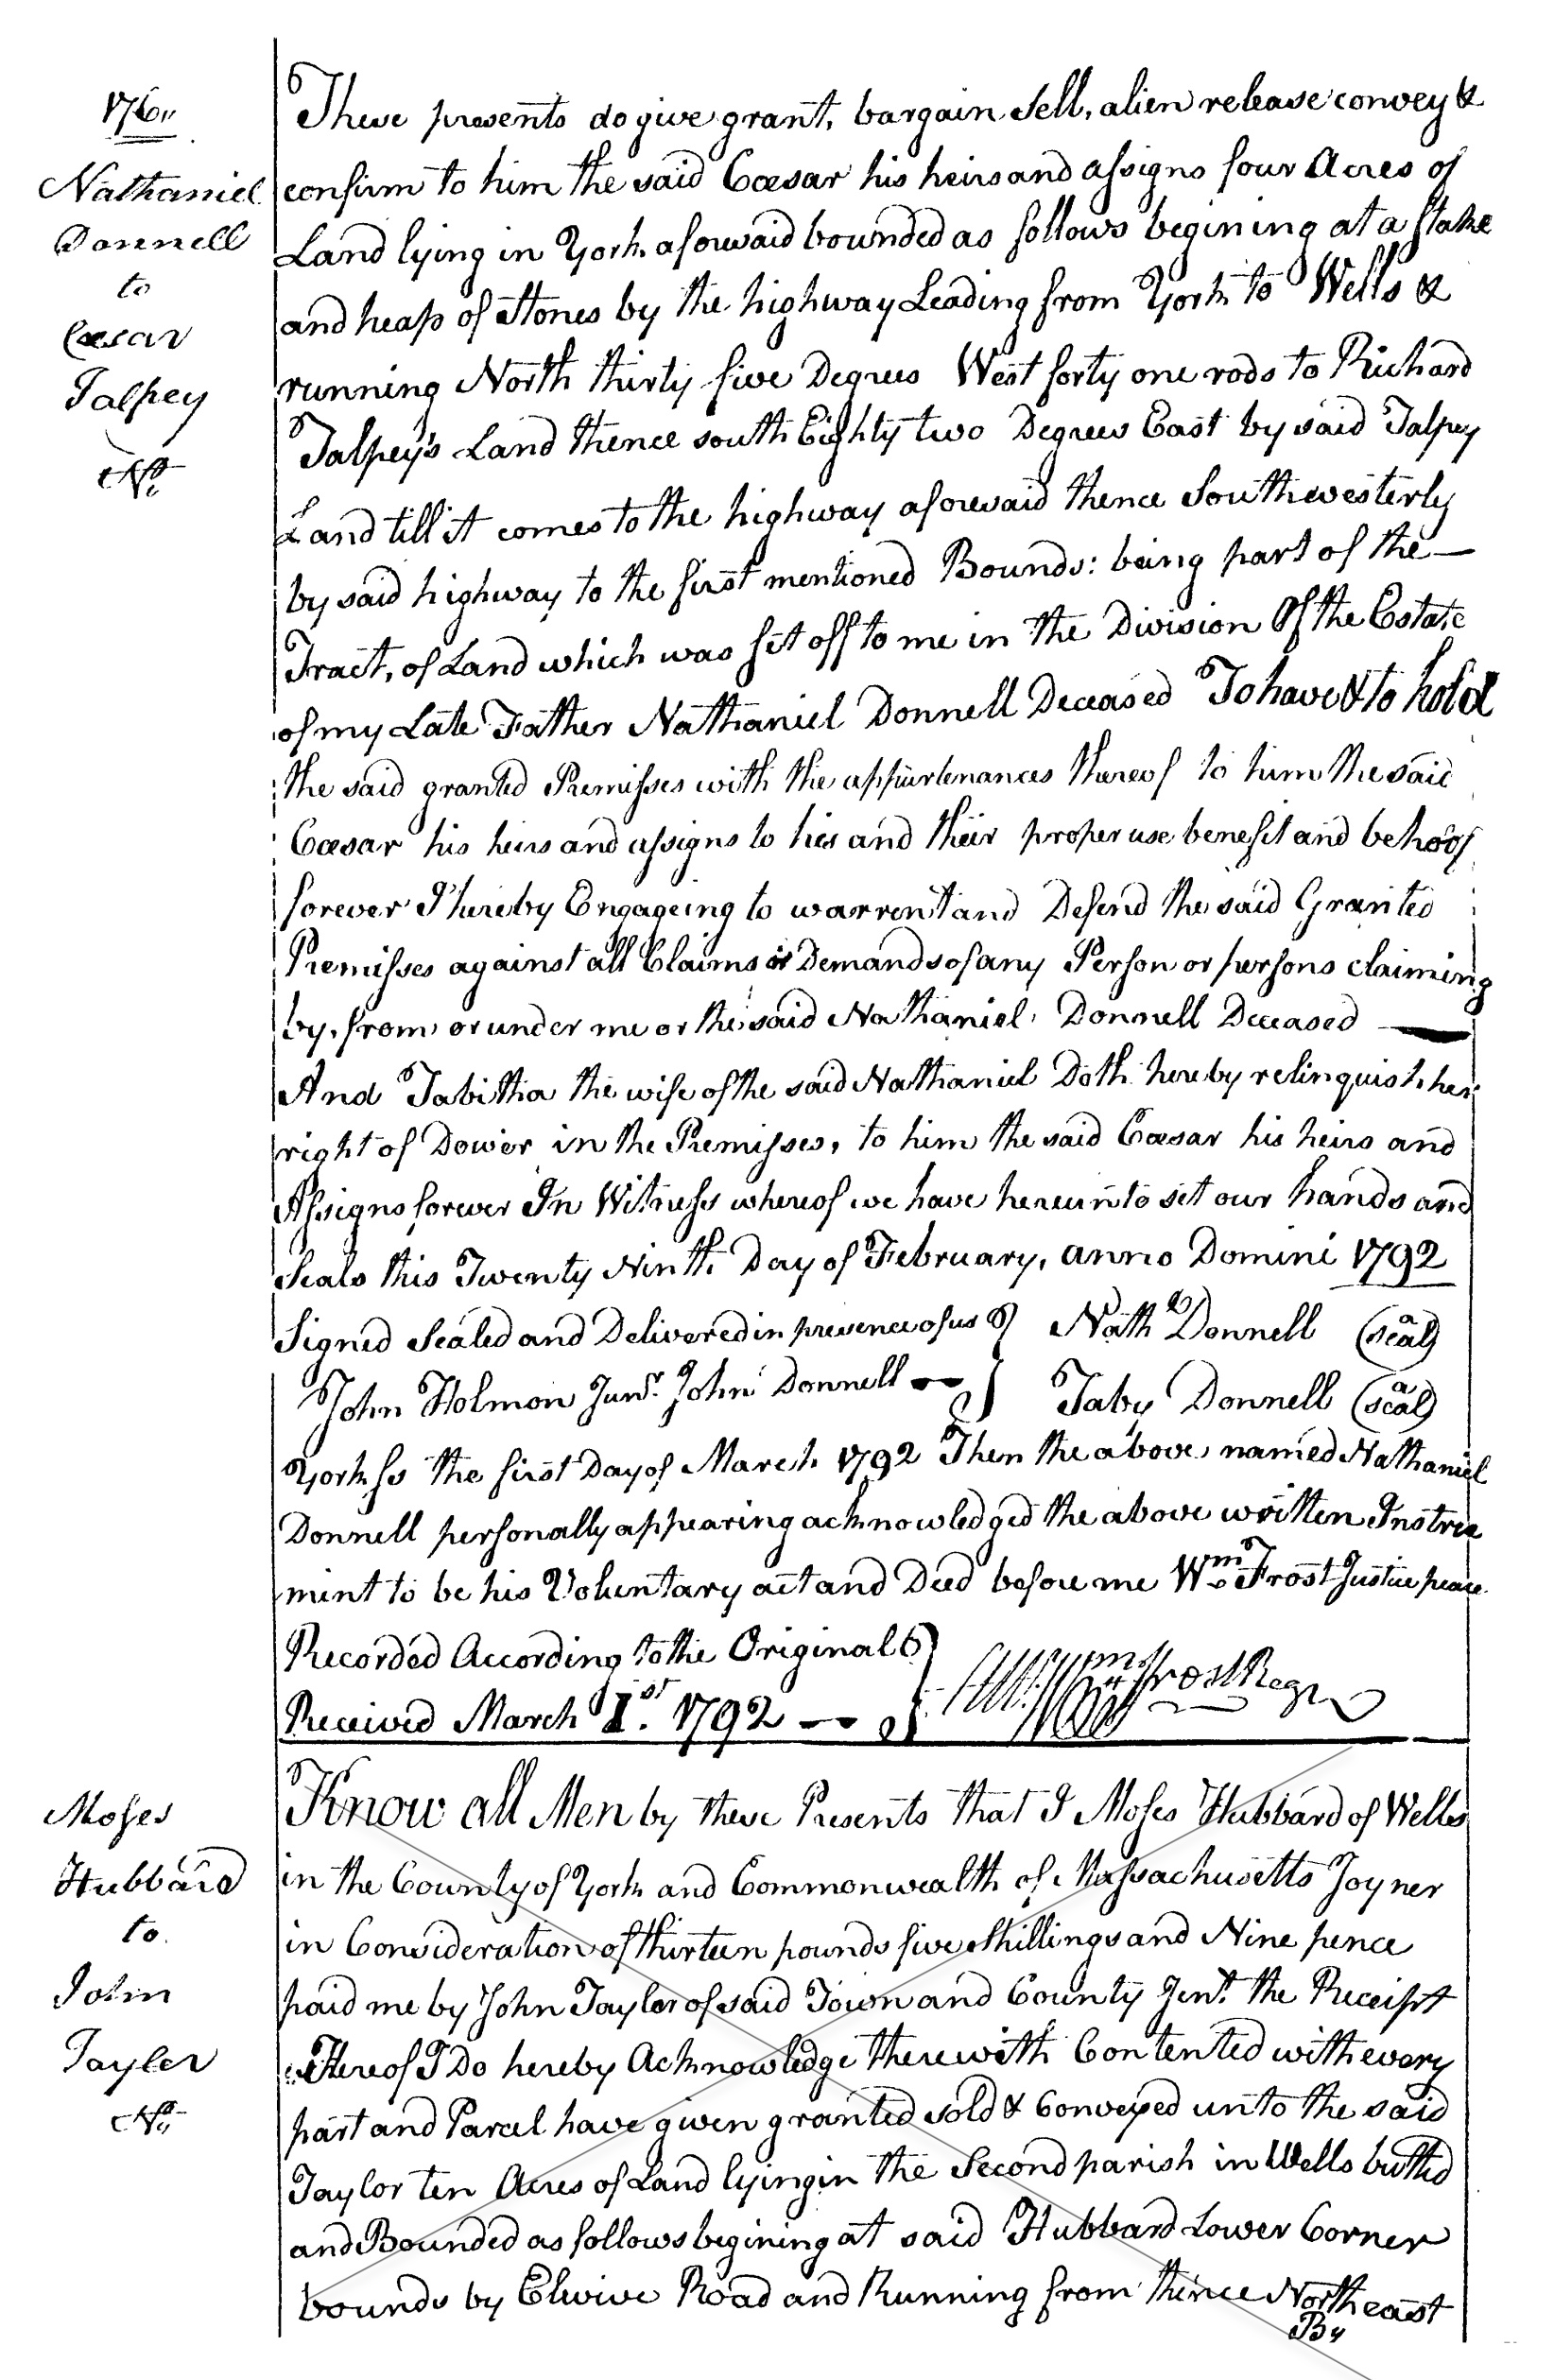 176,,
Nathaniel
Donnell
to
Cæsar
Talpey
These presents do give grant, bargain Sell, alien release convey &
confirm to him the said Cæsar his heirs and assigns four Acres of
Land lying in York aforesaid bounded as follows begining at a Stake
and heap of Stones by the highway Leading from York to Wells &
running North thirty five Degrees West forty one rods to Richard
Talpey's Land thence south Eighty two Degrees East by said Talpey
Land till it comes to the highway aforesaid thence Southwesterly
by said highway to the first mentioned Bounds: being part of the —
Tract, of Land which was set off to me in the Division Of the Estate
of my Late Father Nathaniel Donnell Deceased To have & to hold
the said granted Premisses with the appurtenances thereof to him the said
Cæsar his heirs and assigns to his and their proper use benefit and behoof
forever I hereby Engageing to warrent and Defend the said Granted
Premisses against all Claims or Demands of any Person or persons claiming
by, from or under me or the said Nathaniel Donnell Deceased —
And Tabitha the wife of the said Nathaniel Doth hereby relinquish her
right of Dower in the Premisses, to him the said Cæsar his heirs and
Assigns forever In Witness whereof we have hereunto set our hands and
Seals this Twenty Ninth Day of February, anno Domini 1792
Signed Sealed and Delivered in presence of us } Nath Donnell (seal)
John Holmon Junr. John Donnell — } Taby Donnell (seal)
York ss the first Day of March 1792 Then the above named Nathaniel
Donnell personally appearing acknowledged the above written Instru
ment to be his Voluntary act and Deed before me Wm Frost Justice peace
Recorded According to the Original }
Received March 1st. 1792 — } Wm Frost Regr
Moses
Hubbard
to
John
Tayler
Know all Men by these Presents that I Moses Hubbard of Wells
in the County of York and Commonwealth of Massachusetts Joyner
in Consideration of thirteen pounds five Shillings and Nine pence
paid me by John Taylor of said Town and County Gent. the Receipt
thereof I Do hereby Acknowledge therewith Contented with every
part and Parcel have given granted sold & Conveyed unto the said
Taylor ten Acres of Land lying in the Second parish in Wells butted
and Bounded as follows begining at said Hubbard Lower Corner
bounds by Elwive Road and Running from thence North east
By